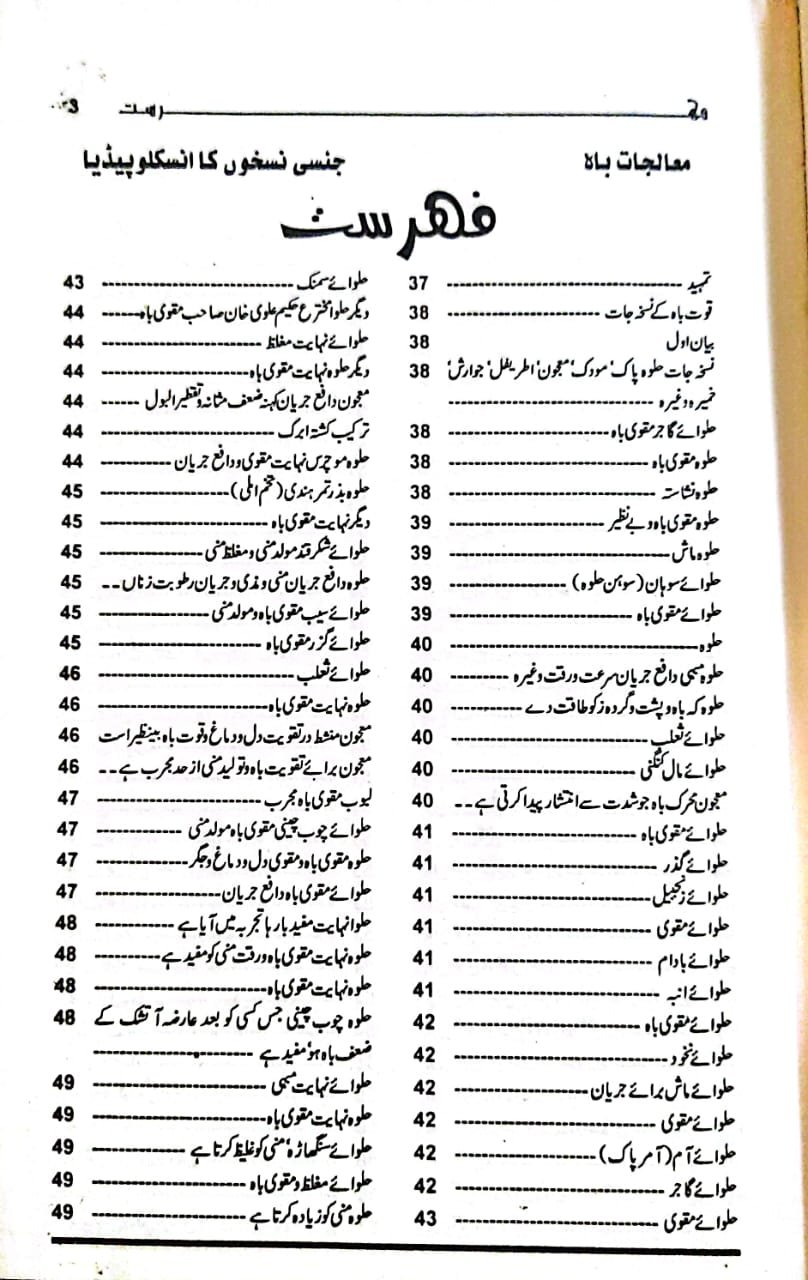 فہرست 3
معالجات باہ جنسی نسخوں کا انسکلوپیڈیا
فہرست
تمہید 37
قوت باہ کے نسخہ جات 38
بیان اول 38
نسخہ جات حلوہ پاک، مودک، معجون، اطریفل، جوارش، 38
خمیرہ وغیرہ
حلوائے گاجر مقوی باہ 38
حلوہ مقوی باہ 38
حلوہ نشاستہ 38
حلوہ مقوی باہ و بے نظیر 39
حلوہ ماش 39
حلوائے سوہان (سوہن حلوہ) 39
حلوائے مقوی باہ 39
حلوہ 40
حلوہ مبہی دافع جریان سرعت ورقت وغیرہ 40
حلوہ کہ باہ و پشت و گردہ ز کو طاقت دے 40
حلوائے ثعلب 40
حلوائے مال کنگنی 40
معجون محرک باہ جو شدت سے انتشار پیدا کرتی ہے 40
حلوائے مقوی باہ 41
حلوائے گذر 41
حلوائے زنجبیل 41
حلوائے مقوی 41
حلوائے بادام 41
حلوائے انبہ 41
حلوائے مقوی باہ 42
حلوائے نخود 42
حلوائے ماش برائے جریان 42
حلوائے مقوی 42
حلوائے آم (آمر پاک) 42
حلوائے گاجر 42
حلوائے مقوی 43
حلوائے سمنک 43
دیگر حلوا مخترع حکیم علوی خان صاحب مقوی باہ 44
حلوائے نہایت مغلظ 44
دیگر حلوہ نہایت مقوی باہ 44
معجون دافع جریان کہنہ ضعف مثانہ و تقطیر البول 44
ترکیب کشتہ ابرک 44
حلوہ موچرس نہایت مقوی و دافع جریان 44
حلوہ بذر تمر ہندی (تخم املی) 45
دیگر نہایت مقوی باہ 45
حلوائے شکر قند مولد منی و مغلظ منی 45
حلوہ دافع جریان منی و مذی و جریان رطوبت زناں 45
حلوائے سیب مقوی باہ و مولد منی 45
حلوائے گزر مقوی باہ 45
حلوائے ثعلب 46
حلوہ نہایت مقوی باہ 46
معجون منشط در تقویت دل و دماغ و قوت باہ بینظیر است 46
معجون برائے تقویت باہ و تولید منی از حد مجرب ہے 46
لبوب مقوی باہ مجرب 47
حلوائے چوب چینی مقوی باہ مولد منی 47
حلوہ مقوی باہ و مقوی دل و دماغ و جگر 47
حلوائے مقوی باہ دافع جریان 47
حلوا نہایت مفید بارہا تجربہ میں آیا ہے 48
حلوہ نہایت مقوی باہ ورقت منی کو مفید ہے 48
حلوہ نہایت مقوی باہ 48
حلوہ چوب چینی جس کسی کو بعد عارضہ آتشک کے 48
ضعف باہ ہو، مفید ہے
حلوائے نہایت مبہی 49
حلوہ نہایت مقوی باہ 49
حلوائے سنگھاڑہ، منی کو غلیظ کرتا ہے 49
حلوائے مغلظ و مقوی باہ 49
حلوہ منی کو زیادہ کرتا ہے 49